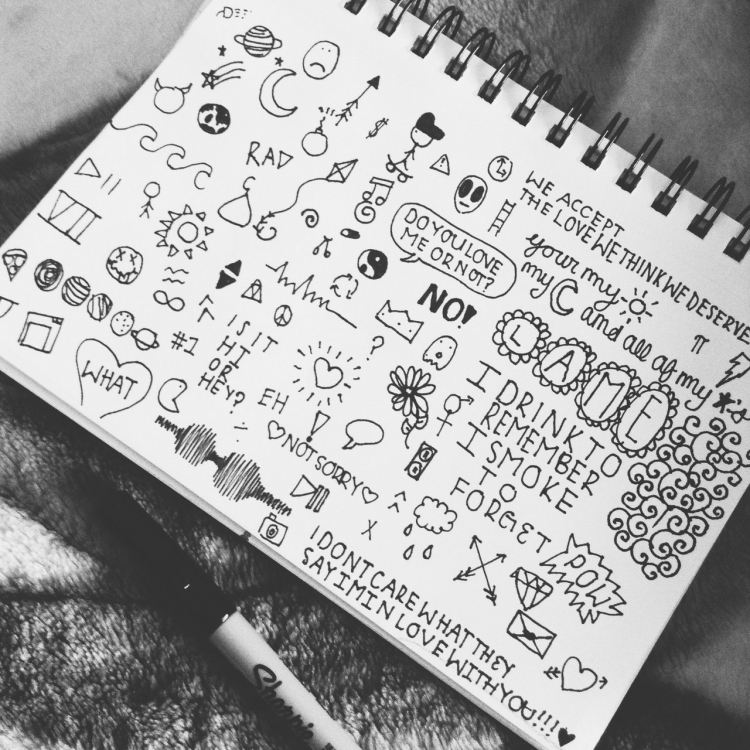 RAD
VII
DO YOU LOVE
ME OR NOT?
NO!
WE ACCEPT
THE LOVE WE THINK WE DESERVE
your my
my and all of my *'s
π
LAME
I DRINK TO
REMEMBER
I SMOKE
TO
FORGET
#1
IS IT
HT
OR
HEY?
WHAT
EH
!
?
$
♡NOT SORRY♡
X
POW!
I DONT CARE WHAT THEY
SAY IM IN LOVE WITH YOU!!!!♥
Sharpie